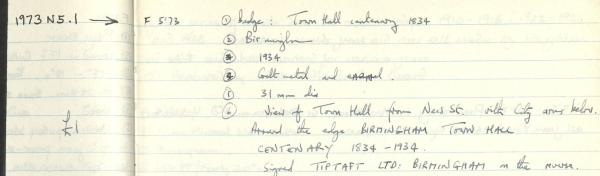 1973 N5.1 → F 5'73 ① Badge: Town Hall centenary 1834
② Birmingham
③ 1934
④ Gilt metal and enamel.
⑤ 31 mm dia
⑥ View of Town Hall from New St. with City arms below.
£1 Around the edge BIRMINGHAM TOWN HALL
CENTENARY 1834-1934.
Signed TIPTAFT LTD: BIRMINGHAM on the reverse.